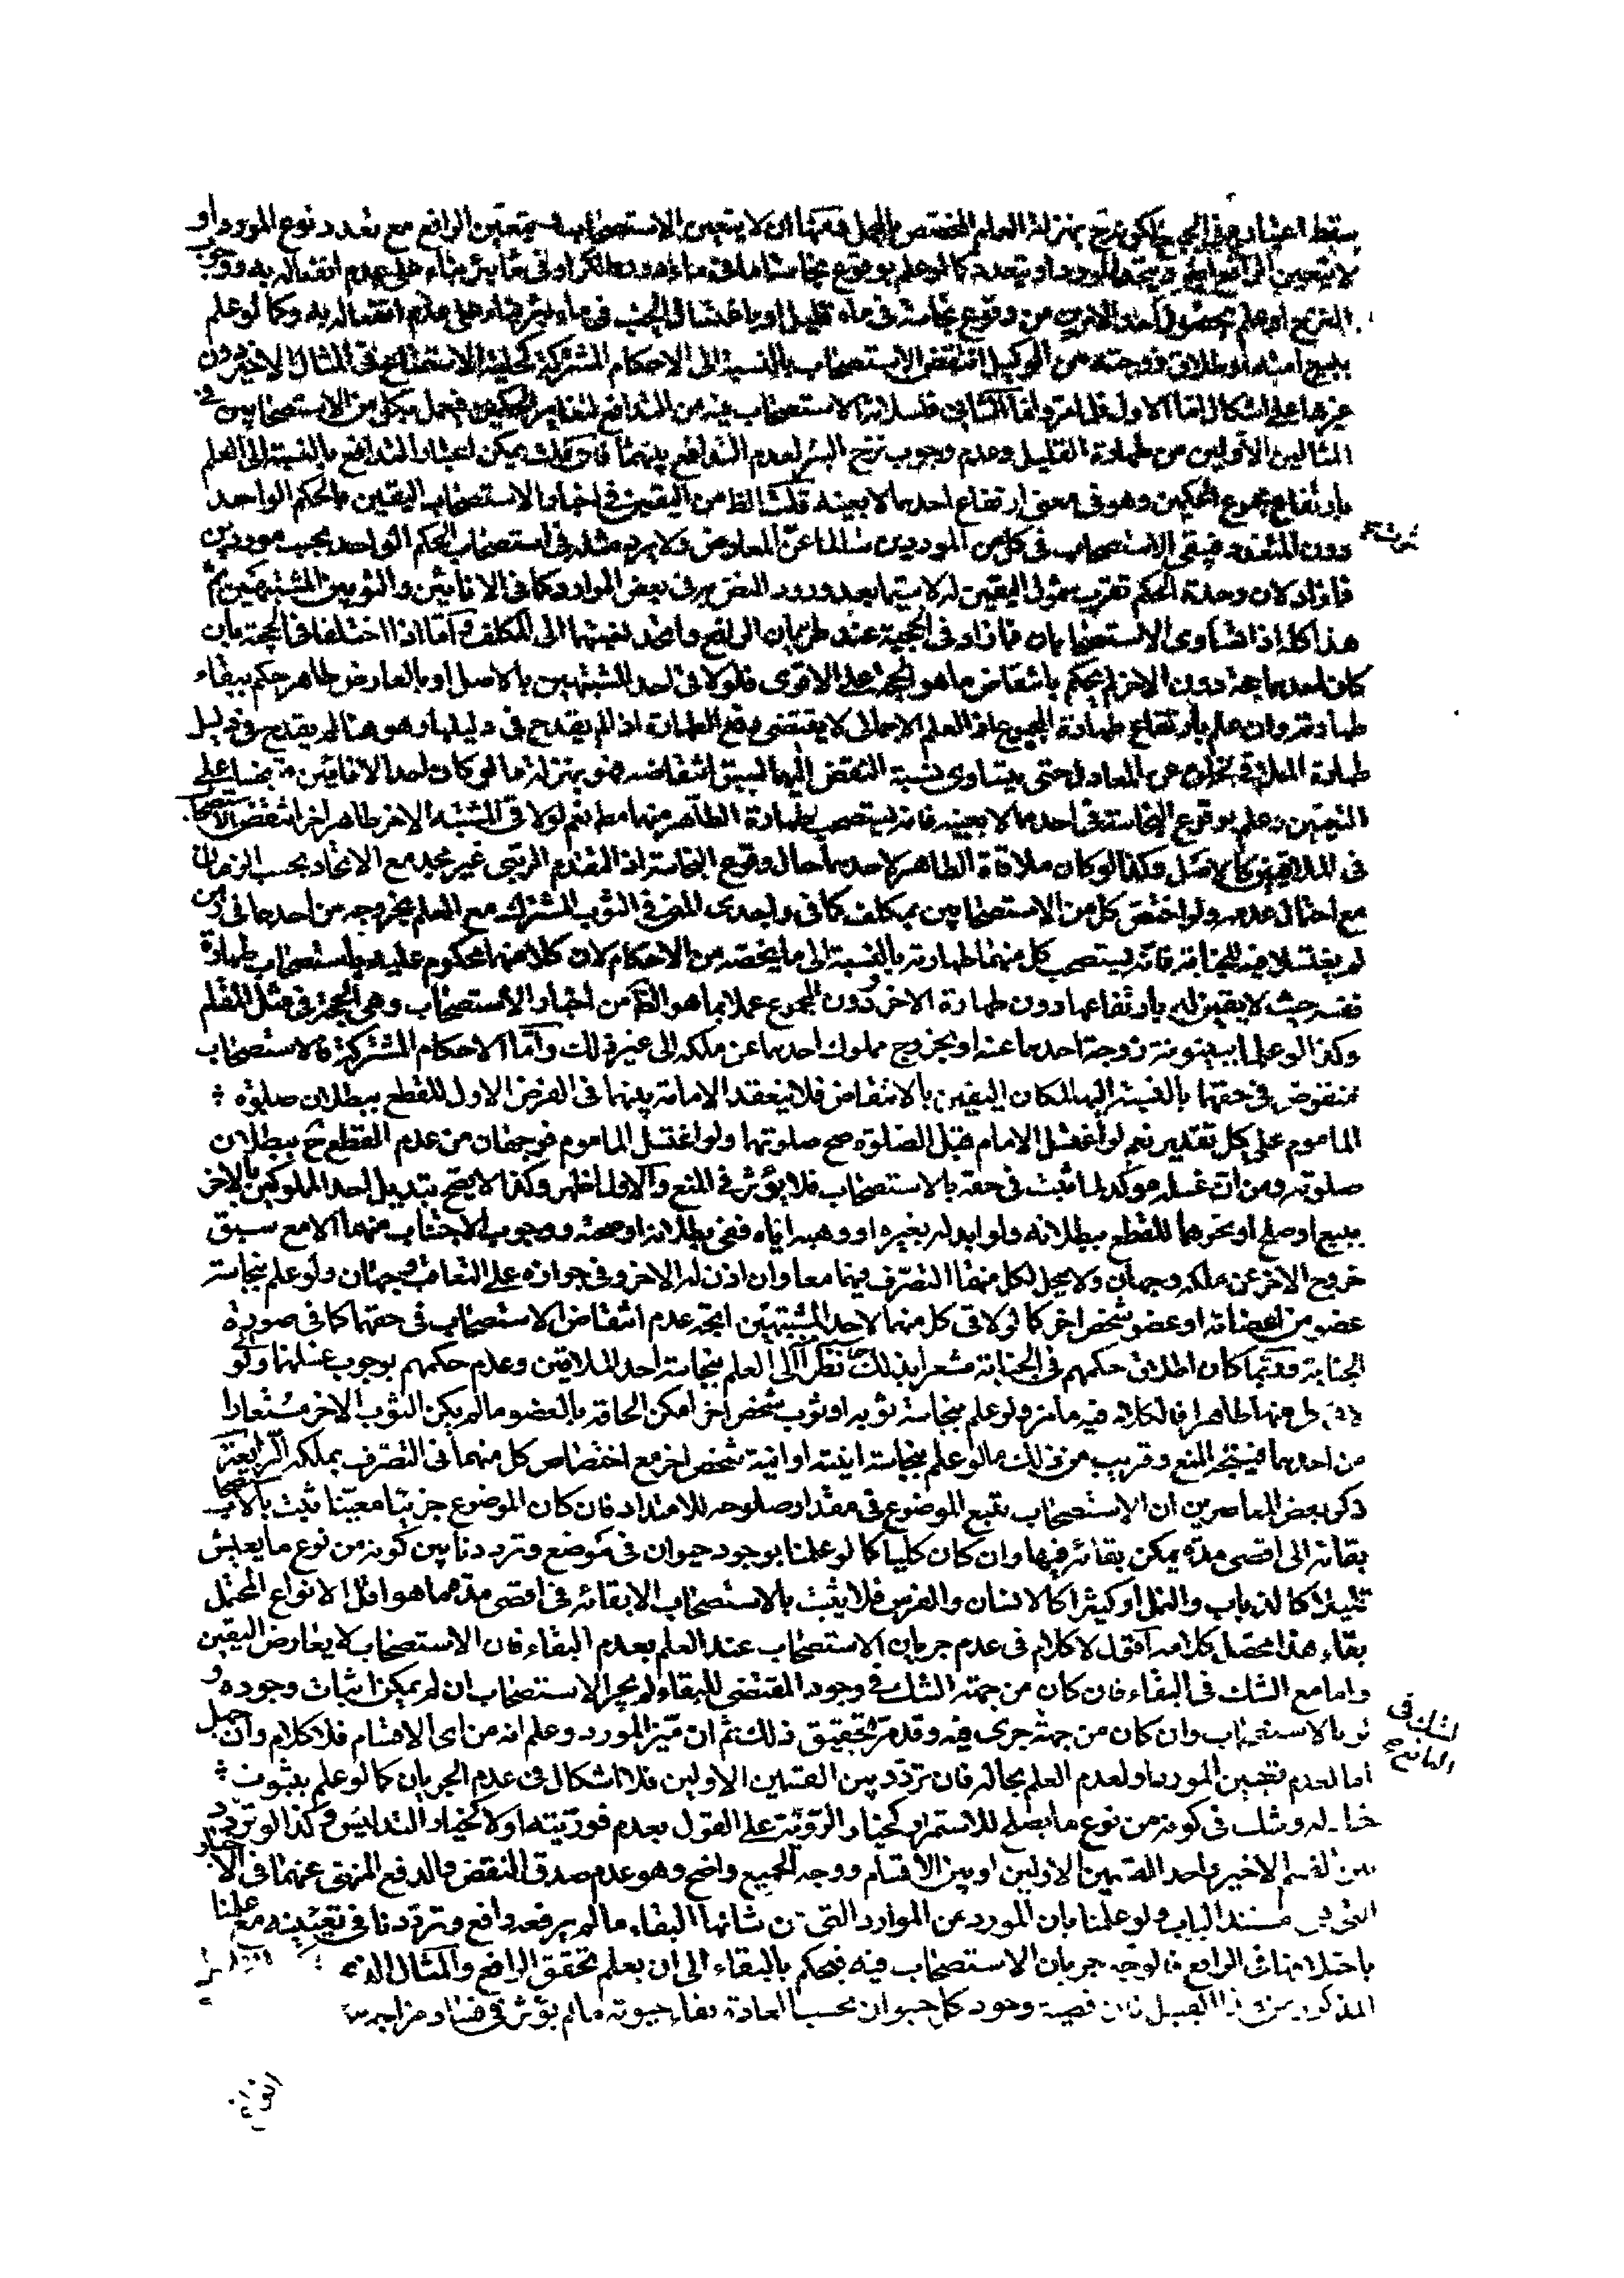 يسقط اعتباره في الجميع لكونه ح بمنزلة العلم المختص بالمجمل ومنها ان لا يتعين الاستصحاب يتعين الرافع مع تعدد نوع المورد او
لا يتعين الرافع ويتحد المورد او يتعدد كما لو علم بوقوع نجاسة اما في ماء دون الكر او في ماء بئر بناء على عدم انفعاله به ووجوب
النزح او علم بحصول احد الامرين من وقوع نجاسة في ماء قليل او باغتسال الجنب في ماء بئر بناء على عدم انفعاله به وكما لو علم
ببيع امته او طلاق زوجته من الوكيل انتقض الاستصحاب بالنسبة الى الاحكام المشتركة كحلية الاستمتاع في المثال الاخير دون
غيرها على اشكال اما الاول فلما مر واما الثاني فلسلامة الاستصحاب فيه من التدافع لتغاير الحكمين فيعمل بكل من الاستصحابين في
المثالين الاولين من طهارة القليل وعدم وجوب نزح البئر لعدم التدافع بينهما فان قلت يمكن اعتبار التدافع بالنسبة الى العلم
بارتفاع مجموع الحكمين وهو في معنى ارتفاع احدهما لا بعينه قلت الظ من اليقين في اخبار الاستصحاب اليقين بالحكم الواحد
دون المتعدد فيبقى الاستصحاب في كل من الموردين سالما عن المعارض ولا يرد مثله في استصحاب الحكم الواحد بحسب موردين
فزاد لان وحدة الحكم تقرب شمول اليقين له لا سيما بعد ورود النص به في بعض الموارد كما في الانائين والثوبين المشتبهين ثم
هذا كله اذا تساوى الاستصحابان فزاد في الحجية عند طريان الرافع واتحد نسبتهما الى المكلف واما اذا اختلفا في الحجية بان
كان احدهما حجة دون الاخر لم يحكم بانتقاض ما هو الحجة على الاقوى فلو لاقى احد المشتبهين بالاصل او بالعارض طاهر حكم ببقاء
طهارته وان علم بارتفاع طهارة المجموع اذ العلم الاجمالي لا يقتضي رفع الطهارة اذا لم يقدح في دليلها وهو هنا لم يقدح في دليل
طهارة الملاقي عن المعادل حتى يتساوى نسبة النقض اليهما لسبق انتقاضه فهو بمنزلة ما لو كان احد الانائين متنجسا على
التعيين وعلم بوقوع النجاسة في احدهما لا بعينه فانه يستصحب طهارة الطاهر منهما مط نعم لو لاقى المشتبه الاخر طاهر اخر انتقض الاستصحاب
في الملاقيين كالاصل وكذا لو كان ملاقاة الطاهر لاحدهما حال وقوع النجاسة اذ التقدم الرتبي غير مجد مع الاتحاد بحسب الزمان
مع احتمال عدمه ولو اختص كل من الاستصحابين بمكلف كما في واجدي المني في الثوب المشترك مع العلم بخروجه من احدهما في زمن
لم يغتسلا فيه للجنابة فانه يستصحب كل منهما طهارته بالنسبة الى ما يخصه من الاحكام لان كلا منهما محكوم عليه باستصحاب طهارة
نفسه حيث لا يقين له بارتفاعها دون طهارة الاخر ودون المجموع عملا بما هو الظ من اخبار الاستصحاب وهي الحجة في مثل المقام
وكذا لو علما ببينونة زوجة احدهما عنه او بخروج مملوك احدهما عن ملكه الى غير ذلك واما الاحكام المشتركة فالاستصحاب
منقوض في حقهما بالنسبة اليها لمكان اليقين بالانتقاض فلا ينعقد الامامة بينهما في الفرض الاول للقطع ببطلان صلوة
الماموم على كل تقدير نعم لو اغتسل الامام قبل الصلوة صح صلوتهما ولو اغتسل الماموم فوجهان من عدم القطع ح ببطلان
صلوته ومن ان غسله موكد لما ثبت في حقه بالاستصحاب فلا يؤثر في المنع والاول اظهر وكذا لا يصح تبديل احد المملوكين بالاخر
ببيع او صلح او نحوهما للقطع ببطلانه ولو ابدله بغيره او وهبه اياه ففي بطلانه او صحته ووجوب الاجتناب منهما الا مع سبق
خروج الاخر عن ملكه وجهان ولا يحل لكل منهما التصرف فيهما معا وان اذن له الاخر وفي جوازه على التعاقب وجهان ولو علم بنجاسة
عضو من اعضائه او عضو شخص اخر كما لو لاقى كل منهما لاحد المشتبهين اتجه عدم انتقاض الاستصحاب في حقهما كما في صورة
الجنابة وربما كان اطلاق حكمهم في الجنابة مشعرا بذلك نظرا الى العلم بنجاسة احد الملاقيين وعدم حكمهم بوجوب غسلهما ولو
لاقى كل منهما طاهرا فالكلام فيه ما مر ولو علم بنجاسة ثوبه او ثوب شخص اخر امكن الحاقه بالعضو ما لم يكن الثوب الاخر مستعارا
من احدهما فيتجه المنع وقريب من ذلك ما لو علم بنجاسة انيته او انية شخص اخر مع اختصاص كل منهما في التصرف بملكه الرابعة
ذكر بعض المعاصرين ان الاستصحاب يتبع الموضوع في مقدار صلوحه للامتداد فان كان الموضوع جزئيا معينا ثبت بالاستصحاب
بقائه الى اقصى مدة يمكن بقائه فيها وان كان كليا كما لو علمنا بوجود حيوان في موضع وترددنا بين كونه من نوع ما يعيش
قليلا كالذباب والنمل او كثيرا كالانسان والفرس فلا يثبت بالاستصحاب الا بقائه في اقصى مدة ما هو اقل الانواع المحتمل
بقاء هذا محصل كلامه اقول لا كلام في عدم جريان الاستصحاب عند العلم بعدم البقاء فان الاستصحاب لا يعارض اليقين
واما مع الشك في البقاء فان كان من جهة الشك في وجود المقتضي للبقاء لم يجر الاستصحاب ان لم يمكن اثبات وجوده و
لو بالاستصحاب وان كان من جهة الشك في المانع جرى فيه وقد مر تحقيق ذلك ثم ان ميز المورد وعلم انه من اي الاقسام فلا كلام وان جهل
اما لعدم تعيين المورد او لعدم العلم بحاله فان تردد بين القسمين الاولين فلا اشكال في عدم الجريان كما لو علم بثبوت
خيار له وشك في كونه من نوع ما يصلح للاستمرار كخيار الرؤية على القول بعدم فوريته او لا كخيار التدليس وكذا لو تردد
بين القسم الاخير واحد القسمين الاولين او بين الاقسام ووجه الجميع واضح وهو عدم صدق النقض والدفع المنهي عنهما في الاخبار
التي هي مستند الباب ولو علمنا بان المورد من الموارد التي من شانها البقاء ما لم يرفعه رافع وترددنا في تعيينه مع علمنا
باختلافها في الرافع فالوجه جريان الاستصحاب فيه فيحكم بالبقاء الى ان يعلم تحقق الرافع والمثال
المذكور من هذا القبيل فان قضية وجود كل حيوان بحسب العادة بقاء حيوته ما لم يؤثر في فساد مزاجه